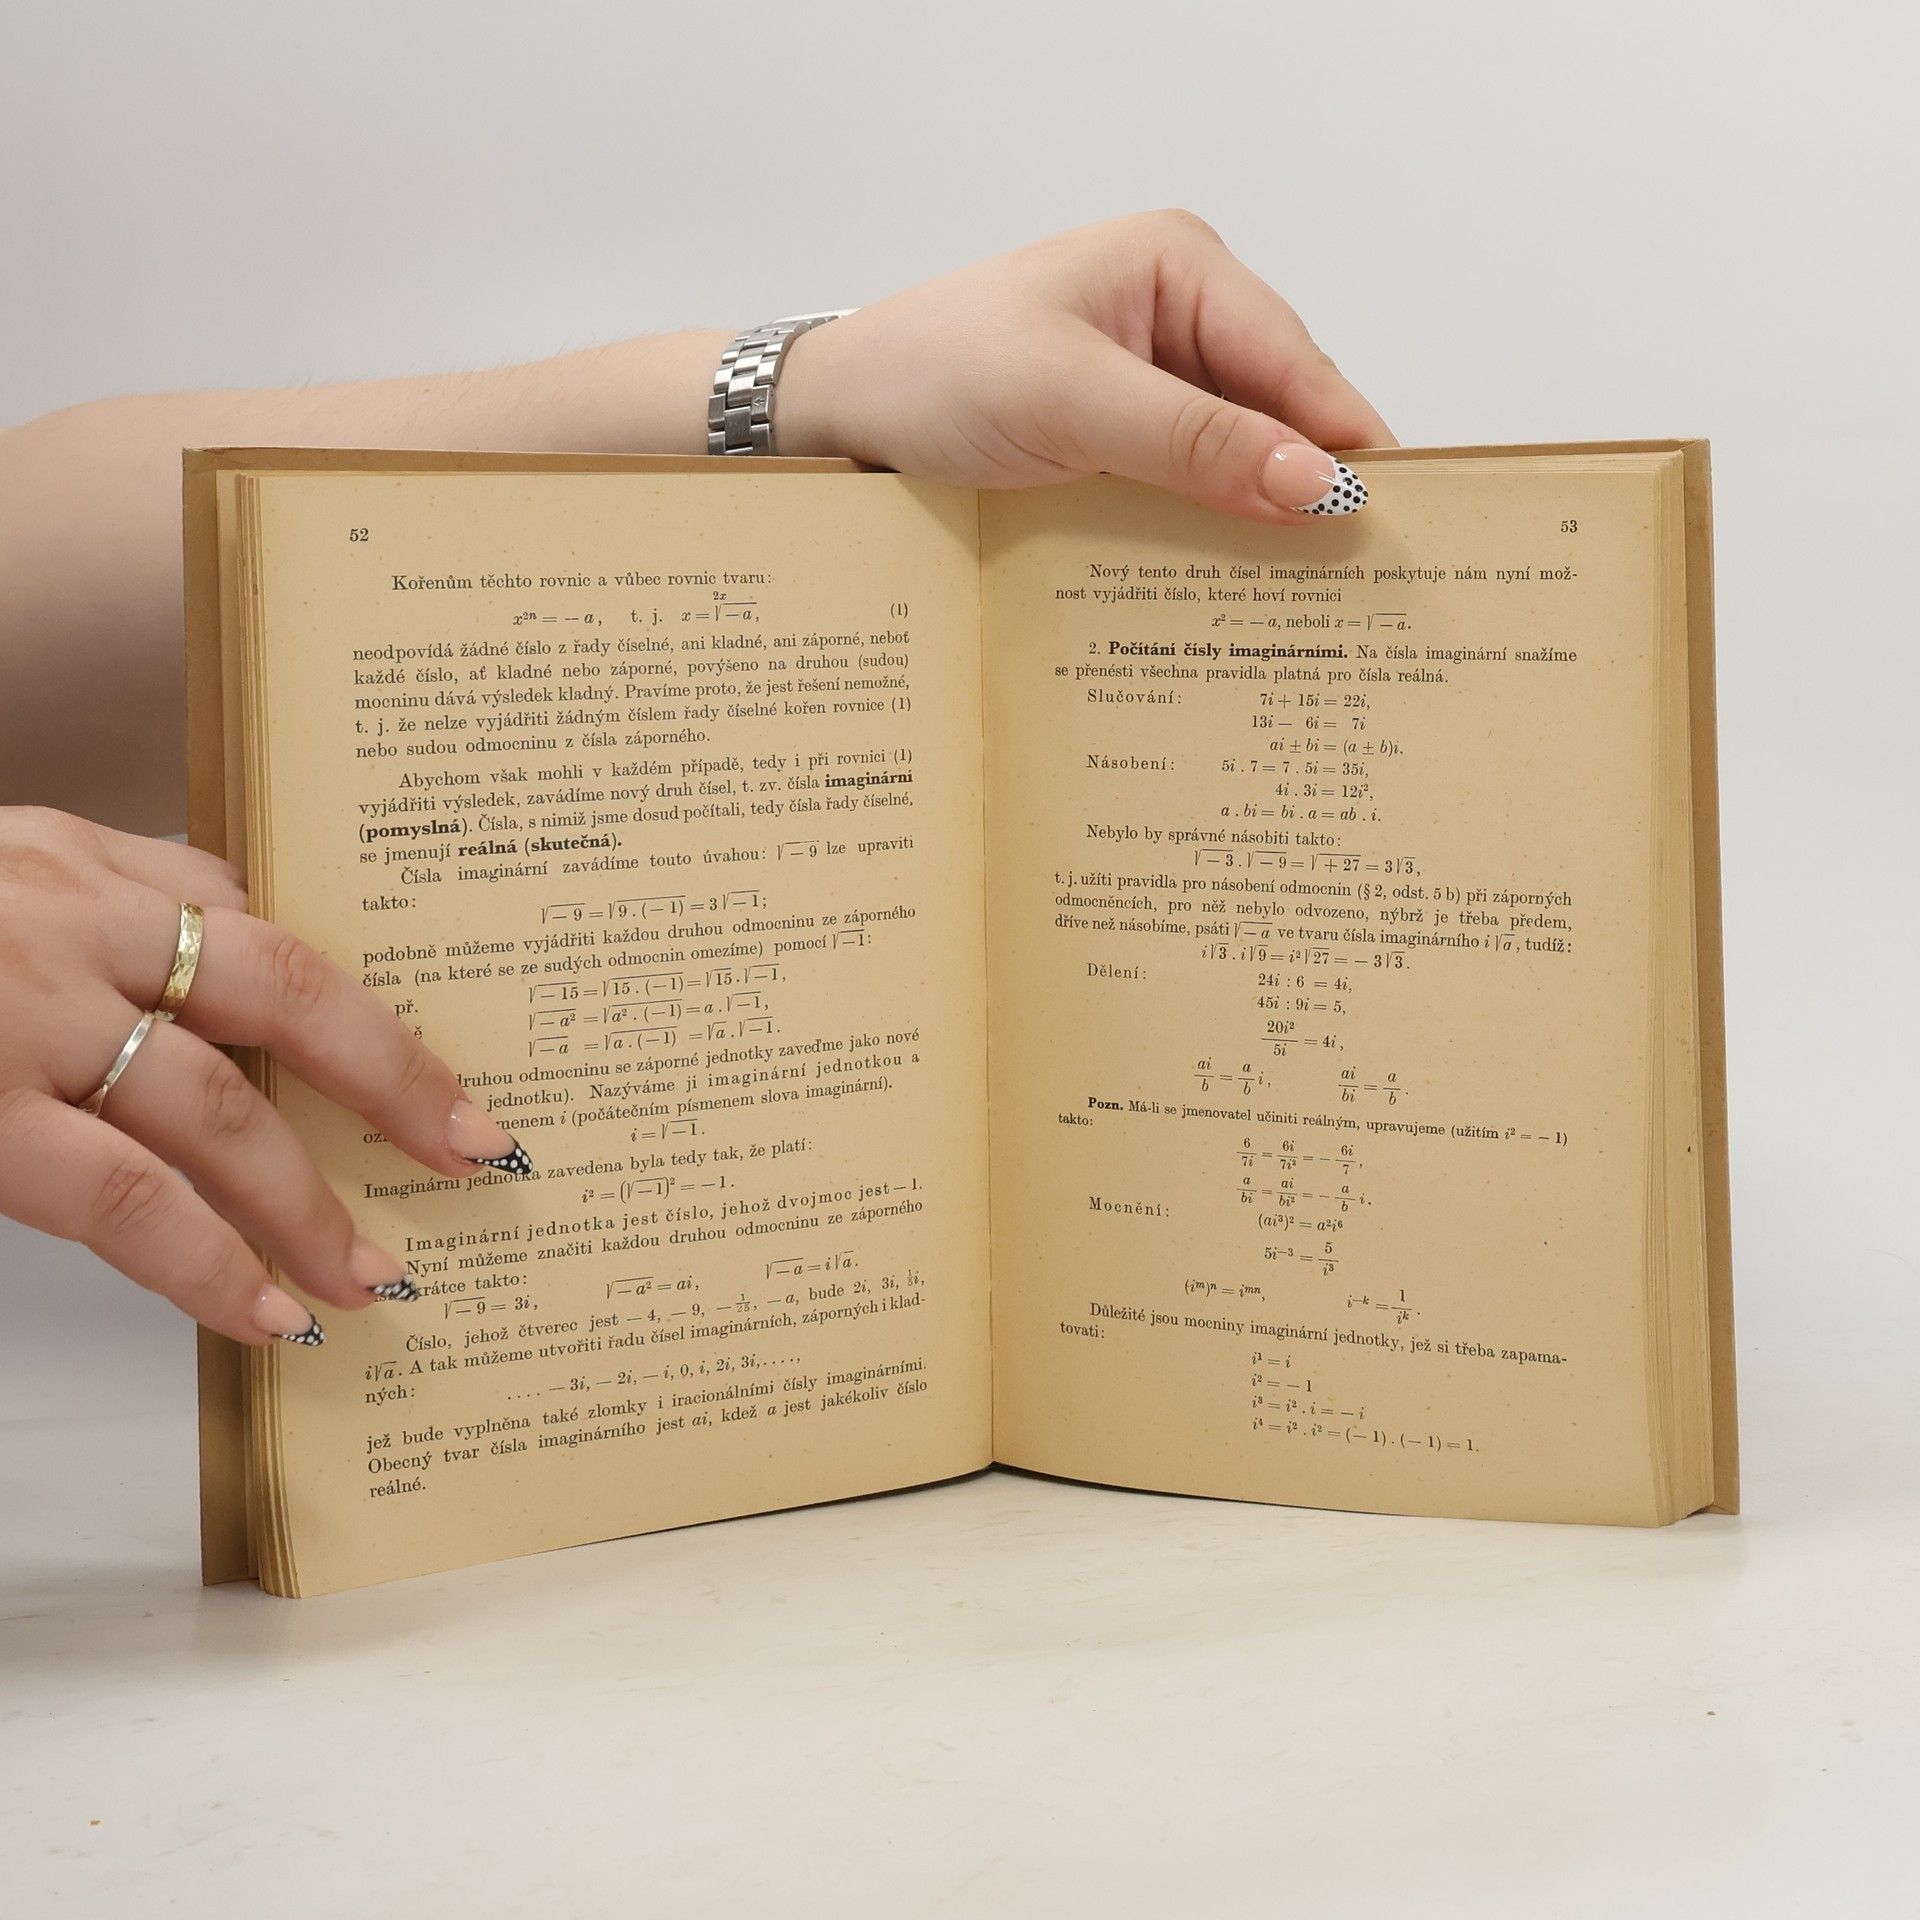 52
Kořenům těchto rovnic a vůbec rovnic tvaru:
x²ⁿ = — a, t. j. x = 2x√—a, (1)
neodpovídá žádné číslo z řady číselné, ani kladné, ani záporné, neboť
každé číslo, ať kladné nebo záporné, povýšeno na druhou (sudou)
mocninu dává výsledek kladný. Pravíme proto, že jest řešení nemožné,
t. j. že nelze vyjádřiti žádným číslem řady číselné kořen rovnice (1)
nebo sudou odmocninu z čísla záporného.
Abychom však mohli v každém případě, tedy i při rovnici (1)
vyjádřiti výsledek, zavádíme nový druh čísel, t. zv. čísla imaginární
(pomyslná). Čísla, s nimiž jsme dosud počítali, tedy čísla řady číselné,
se jmenují reálná (skutečná).
Čísla imaginární zavádíme touto úvahou: √—9 lze upraviti
takto:
√—9 = √9 . (—1) = 3 √—1;
podobně můžeme vyjádřiti každou druhou odmocninu ze záporného
čísla (na které se ze sudých odmocnin omezíme) pomocí √—1:
př. √—15 = √15 . (—1) = √15 . √—1,
√—a² = √a² . (—1) = a . √—1,
√—a = √a . (—1) = √a . √—1.
druhou odmocninu se záporné jednotky zaveďme jako nové
jednotku). Nazýváme ji imaginární jednotkou a
menem i (počátečním písmenem slova imaginární).
i = √—1.
Imaginární jednotka zavedena byla tedy tak, že platí:
i² = (√—1)² = —1.
Imaginární jednotka jest číslo, jehož dvojmoc jest —1.
Nyní můžeme značiti každou druhou odmocninu ze záporného
krátce takto:
√—9 = 3i, √—a² = ai, √—a = i√a.
Číslo, jehož čtverec jest — 4, — 9, — 1/25, — a, bude 2i, 3i, 1/5i,
i√a. A tak můžeme utvořiti řadu čísel imaginárních, záporných i klad-
ných:
.... — 3i, — 2i, — i, 0, i, 2i, 3i, ....,
jež bude vyplněna také zlomky i iracionálními čísly imaginárními.
Obecný tvar čísla imaginárního jest ai, kdež a jest jakékoliv číslo
reálné.
53
Nový tento druh čísel imaginárních poskytuje nám nyní mož-
nost vyjádřiti číslo, které hoví rovnici
x² = — a, neboli x = √—a.
2. Počítání čísly imaginárními. Na čísla imaginární snažíme
se přenésti všechna pravidla platná pro čísla reálná.
Slučování: 7i + 15i = 22i,
13i — 6i = 7i
ai ± bi = (a ± b)i.
Násobení: 5i . 7 = 7 . 5i = 35i,
4i . 3i = 12i²,
a . bi = bi . a = ab . i.
Nebylo by správné násobiti takto:
√—3 . √—9 = √+27 = 3√3,
t. j. užíti pravidla pro násobení odmocnin (§ 2, odst. 5 b) při záporných
odmocněncích, pro něž nebylo odvozeno, nýbrž je třeba předem,
dříve než násobíme, psáti √—a ve tvaru čísla imaginárního i √a, tudíž:
i√3 . i√9 = i²√27 = — 3√3.
Dělení: 24i : 6 = 4i,
45i : 9i = 5,
20i²/5i = 4i,
ai/b = a/b i, ai/bi = a/b.
Pozn. Má-li se jmenovatel učiniti reálným, upravujeme (užitím i² = — 1)
takto:
6/7i = 6i/7i² = — 6i/7,
a/bi = ai/bi² = — a/b i.
Mocnění: (ai³)² = a²i⁶
5i⁻³ = 5/i³
(iᵐ)ⁿ = iᵐⁿ, i⁻ᵏ = 1/iᵏ.
Důležité jsou mocniny imaginární jednotky, jež si třeba zapama-
tovati:
i¹ = i
i² = — 1
i³ = i² . i = — i
i⁴ = i² . i² = (— 1) . (— 1) = 1.